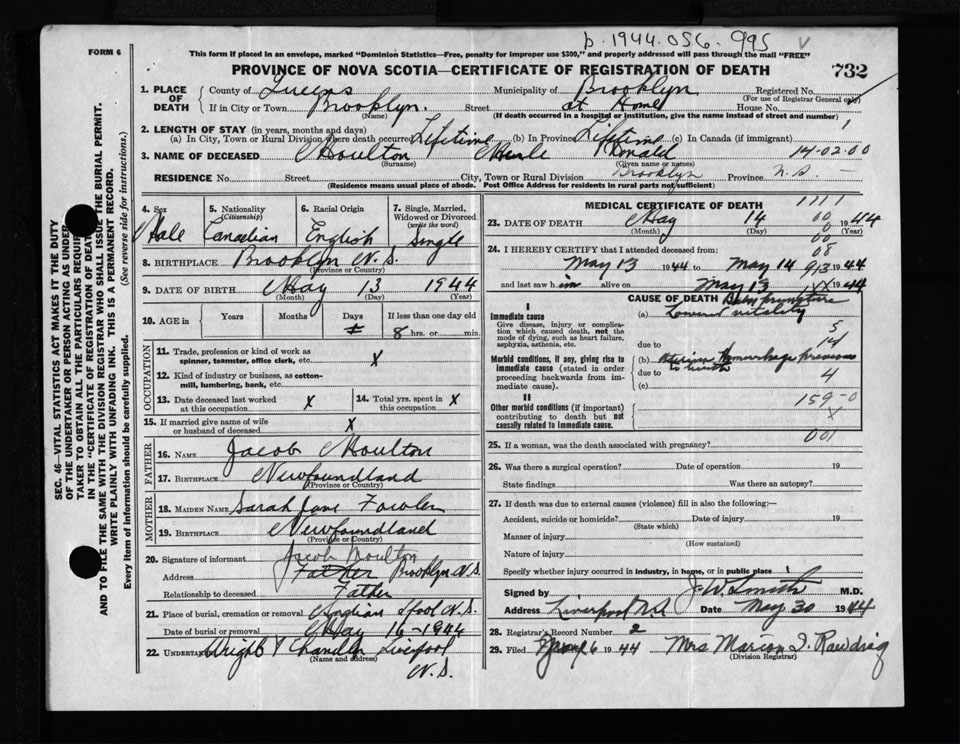 b. 1944.056.995
FORM 6
This form if placed in an envelope, marked "Dominion Statistics—Free, penalty for improper use $300," and properly addressed will pass through the mail "FREE"
PROVINCE OF NOVA SCOTIA—CERTIFICATE OF REGISTRATION OF DEATH 732
1. PLACE OF DEATH
County of Queens Municipality of Brooklyn Registered No.
(For use of Registrar General only)
If in City or Town Brooklyn. Street at Home House No.
(Name) (If death occurred in a hospital or institution, give the name instead of street and number)
2. LENGTH OF STAY (in years, months and days)
(a) In City, Town or Rural Division where death occurred Lifetime (b) In Province Lifetime (c) In Canada (if immigrant)
1
3. NAME OF DECEASED Moulton Merle Donald 14-02-00
(Surname) (Given name or names)
RESIDENCE No. Street City, Town or Rural Division Brooklyn Province N.S.
(Residence means usual place of abode. Post Office Address for residents in rural parts not sufficient)
SEC. 46—VITAL STATISTICS ACT MAKES IT THE DUTY
OF THE UNDERTAKER OR PERSON ACTING AS UNDER-
TAKER TO OBTAIN ALL THE PARTICULARS REQUIR
IN THE "CERTIFICATE OF REGISTRATION OF DEAT
AND TO FILE THE SAME WITH THE DIVISION REGISTRAR WHO SHALL ISSUE THE BURIAL PERMIT.
WRITE PLAINLY WITH UNFADING INK. THIS IS A PERMANENT RECORD.
Every item of information should be carefully supplied. (See reverse side for instructions.)
4. Sex
Male
5. Nationality
(Citizenship)
Canadian
6. Racial Origin
English
7. Single, Married, Widowed or Divorced
(write the word)
Single
8. BIRTHPLACE Brooklyn N.S.
(Province or Country)
9. DATE OF BIRTH May 13 1944
(Month) (Day) (Year)
10. AGE in Years Months Days If less than one day old
8 hrs. or min.
OCCUPATION
11. Trade, profession or kind of work as
spinner, teamster, office clerk, etc. X
12. Kind of industry or business, as cotton-
mill, lumbering, bank, etc.
13. Date deceased last worked
at this occupation X
14. Total yrs. spent in
this occupation X
15. If married give name of wife
or husband of deceased X
FATHER
16. NAME Jacob Moulton
17. BIRTHPLACE Newfoundland
(Province or Country)
MOTHER
18. MAIDEN NAME Sarah Jane Fowler
19. BIRTHPLACE Newfoundland
(Province or Country)
20. Signature of informant Jacob Moulton
Address Father Brooklyn N.S.
Relationship to deceased Father
21. Place of burial, cremation or removal N.S.
Date of burial or removal May 16-1944
22. UNDERTAKER Wright & Chandler Liverpool
(Name and address)
N.S.
MEDICAL CERTIFICATE OF DEATH 1111
23. DATE OF DEATH May 14 1944
(Month) (Day) (Year)
00
00
08
24. I HEREBY CERTIFY that I attended deceased from:
May 13 1944 to May 14 1944
913
and last saw him alive on May 13 1944
CAUSE OF DEATH Baby premature
I
Immediate cause
Give disease, injury or complication which caused death, not the mode of dying, such as heart failure, asphyxia, asthenia, etc.
(a) Lowered vitality
5
due to
14
Morbid conditions, if any, giving rise to immediate cause (stated in order proceeding backwards from immediate cause).
(b) Uterine Hemorrhage previous
to birth
due to 4
(c)
II
Other morbid conditions (if important) contributing to death but not causally related to immediate cause.
159-0
X
001
25. If a woman, was the death associated with pregnancy?
26. Was there a surgical operation? Date of operation 19
State findings Was there an autopsy?
27. If death was due to external causes (violence) fill in also the following:—
Accident, suicide or homicide? Date of injury 19
(State which)
Manner of injury
(How sustained)
Nature of injury
Specify whether injury occurred in industry, in home, or in public place
Signed by J.W. Smith M.D.
Address Liverpool N.S. Date May 30 1944
28. Registrar's Record Number 2
29. Filed 6 1944 Mrs Marion I. Rawding
(Division Registrar)